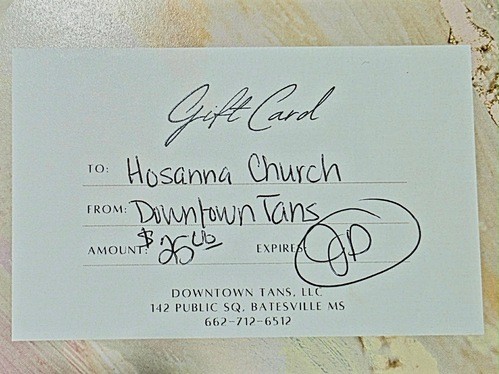 Gift Card
TO: Hosanna Church
FROM: Downtown Tans
AMOUNT: $25.00 EXPIRES: JD
DOWNTOWN TANS, LLC
142 PUBLIC SQ, BATESVILLE MS
662-712-6512